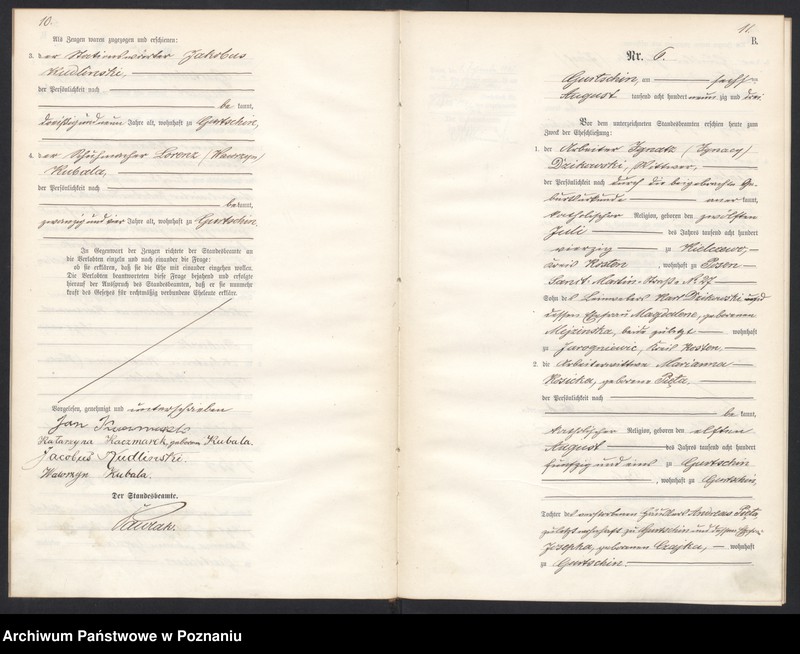 10.
Als Zeugen waren zugezogen und erschienen:
3. der Stationswärter Jakobus
Kudlinski,
der Persönlichkeit nach
be kannt,
dreißig und neun Jahre alt, wohnhaft zu Gurtschin,
4. der Schuhmacher Lorenz /Wawrzyn/
Kubala,
der Persönlichkeit nach
be kannt,
zwanzig und vier Jahre alt, wohnhaft zu Gurtschin.
In Gegenwart der Zeugen richtete der Standesbeamte an
die Verlobten einzeln und nach einander die Frage:
ob sie erklären, daß sie die Ehe mit einander eingehen wollen.
Die Verlobten beantworteten diese Frage bejahend und erfolgte
hierauf der Ausspruch des Standesbeamten, daß er sie nunmehr
kraft des Gesetzes für rechtmäßig verbundene Eheleute erkläre.
Vorgelesen, genehmigt und unterschrieben
Jan Kaczmarek
Katarzyna Kaczmarek, geborene Kubala.
Jacobus Kudlinski.
Wawrzyn Kubala.
Der Standesbeamte.
11.
B.
Nr. 6.
Gurtschin, am sechs
August tausend acht hundert neun zig und drei.
Vor dem unterzeichneten Standesbeamten erschien heute zum
Zweck der Eheschließung:
1. der Arbeiter Ignatz /Ignacy/
Dzikowski, Wittwer,
der Persönlichkeit nach durch die beigebrachte Ge-
burtsurkunde aner kannt,
katholischer Religion, geboren den zwölften
Juli des Jahres tausend acht hundert
vierzig zu
Kreis Kosten, wohnhaft zu Posen
Sanct Martin-Straße № 27
Sohn des Karl Dzikowski und
dessen Ehefrau Magdalene, geborenen
beide zuletzt wohnhaft
zu Jarogniewic, Kreis Kosten.
2. die Arbeiterwittwe Marianna
Kosicka, geborene Pięta,
der Persönlichkeit nach
be kannt,
katholischer Religion, geboren den elften
August des Jahres tausend acht hundert
fünfzig und eins zu Gurtschin
, wohnhaft zu Gurtschin,
Tochter des verstorbenen Häuslers Andreas Pięta
zuletzt wohnhaft zu Gurtschin und dessen Ehefrau
Josepha, geborenen Czajka, wohnhaft
zu Gurtschin.
Archiwum Państwowe w Poznaniu